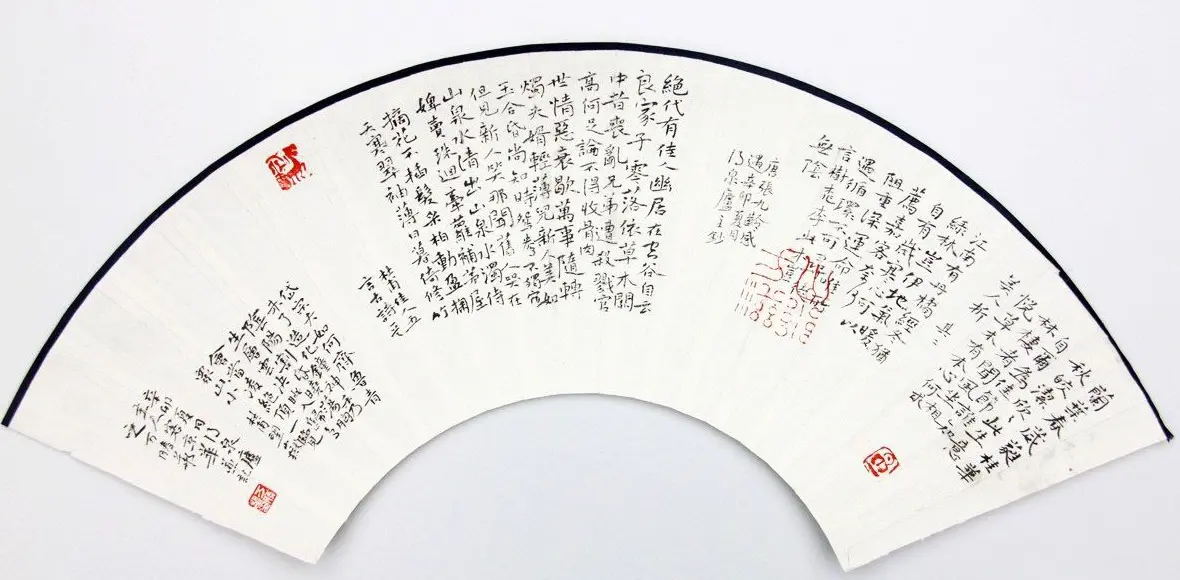 蘭葉春葳蕤桂華
秋皎潔欣此生意
自爾為佳節誰知
林棲者聞風坐相
悅草木有本心何求
美人折
江南有丹橘其二經冬猶
綠林豈伊地氣暖
自有歲寒心可以
薦嘉客奈何
阻重深運命唯所
遇循環不可尋徒
言樹桃李此木豈
無陰
唐張九齡感
遇辛卯夏月
泉廬主鈔
絕代有佳人幽居在空谷自云
良家子零落依草木關
中昔喪亂兄弟遭殺戮官
高何足論不得收骨肉
世情惡衰歇萬事隨轉
燭夫婿輕薄兒新人美如
玉合昏尚知時鴛鴦不獨宿
但見新人笑那聞舊人哭在
山泉水清出山泉水濁侍
婢賣珠迴牽蘿補茅屋
摘花不插髮采柏動盈掬
天寒翠袖薄日暮倚修竹
杜甫佳人五
言古詩一首
岱宗夫如何齊魯青
未了造化鍾神秀
陰陽割昏曉盪胸
生層雲決眥入歸鳥
會當凌絕頂一覽
眾山小